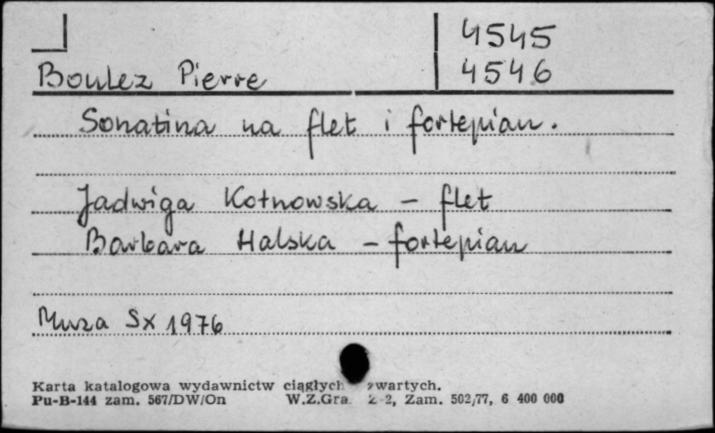 4545
Boulez Pierre 4546
Sonatina na flet i fortepian.
Jadwiga Kotnowska – flet
Barbara Halska – fortepian
Muza Sx 1976
Karta katalogowa wydawnictw ciągłych zwartych.
Pu-B-144 zam. 567/DW/On W.Z.Gra. Z-2, Zam. 502/77, 6 400 000